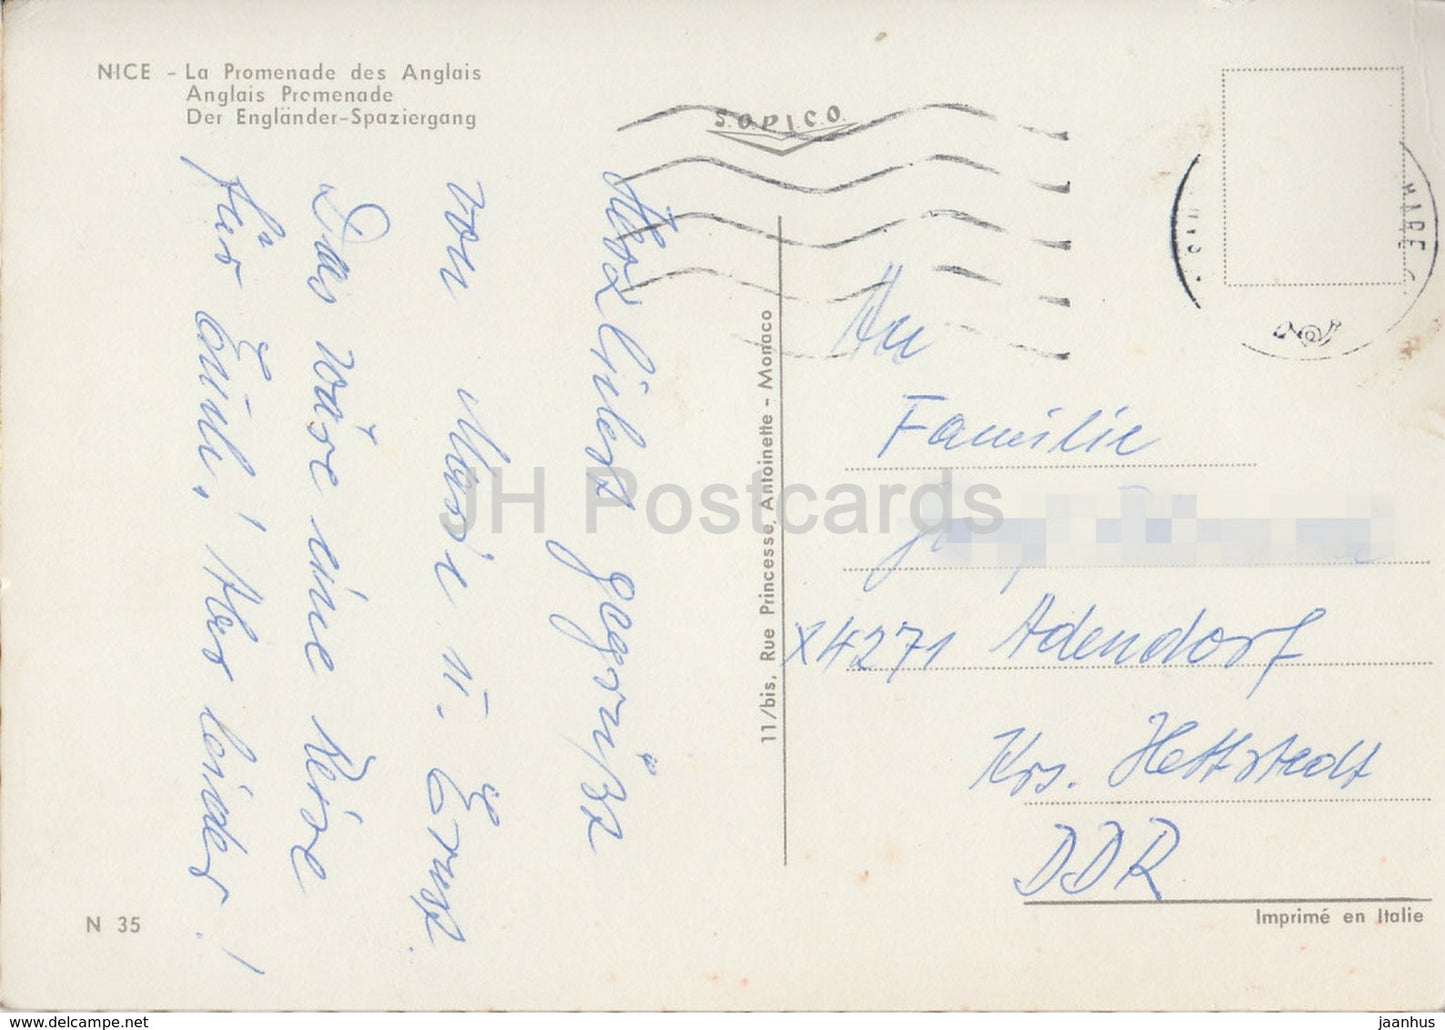 NICE - La Promenade des Anglais
Anglais Promenade
Der Engländer-Spaziergang
S.O.P.I.C.O.
11/bis, Rue Princesse, Antoinette - Monaco
Herzlichst gegrüßt
von Marie u. Ernst.
Das wäre eine Reise
für Euch! Aber leider!
An
Familie
X4271 Adendorf
Krs. Hettstedt
DDR
N 35
Imprimé en Italie
JH Postcards
www.delcampe.net
jaanhus